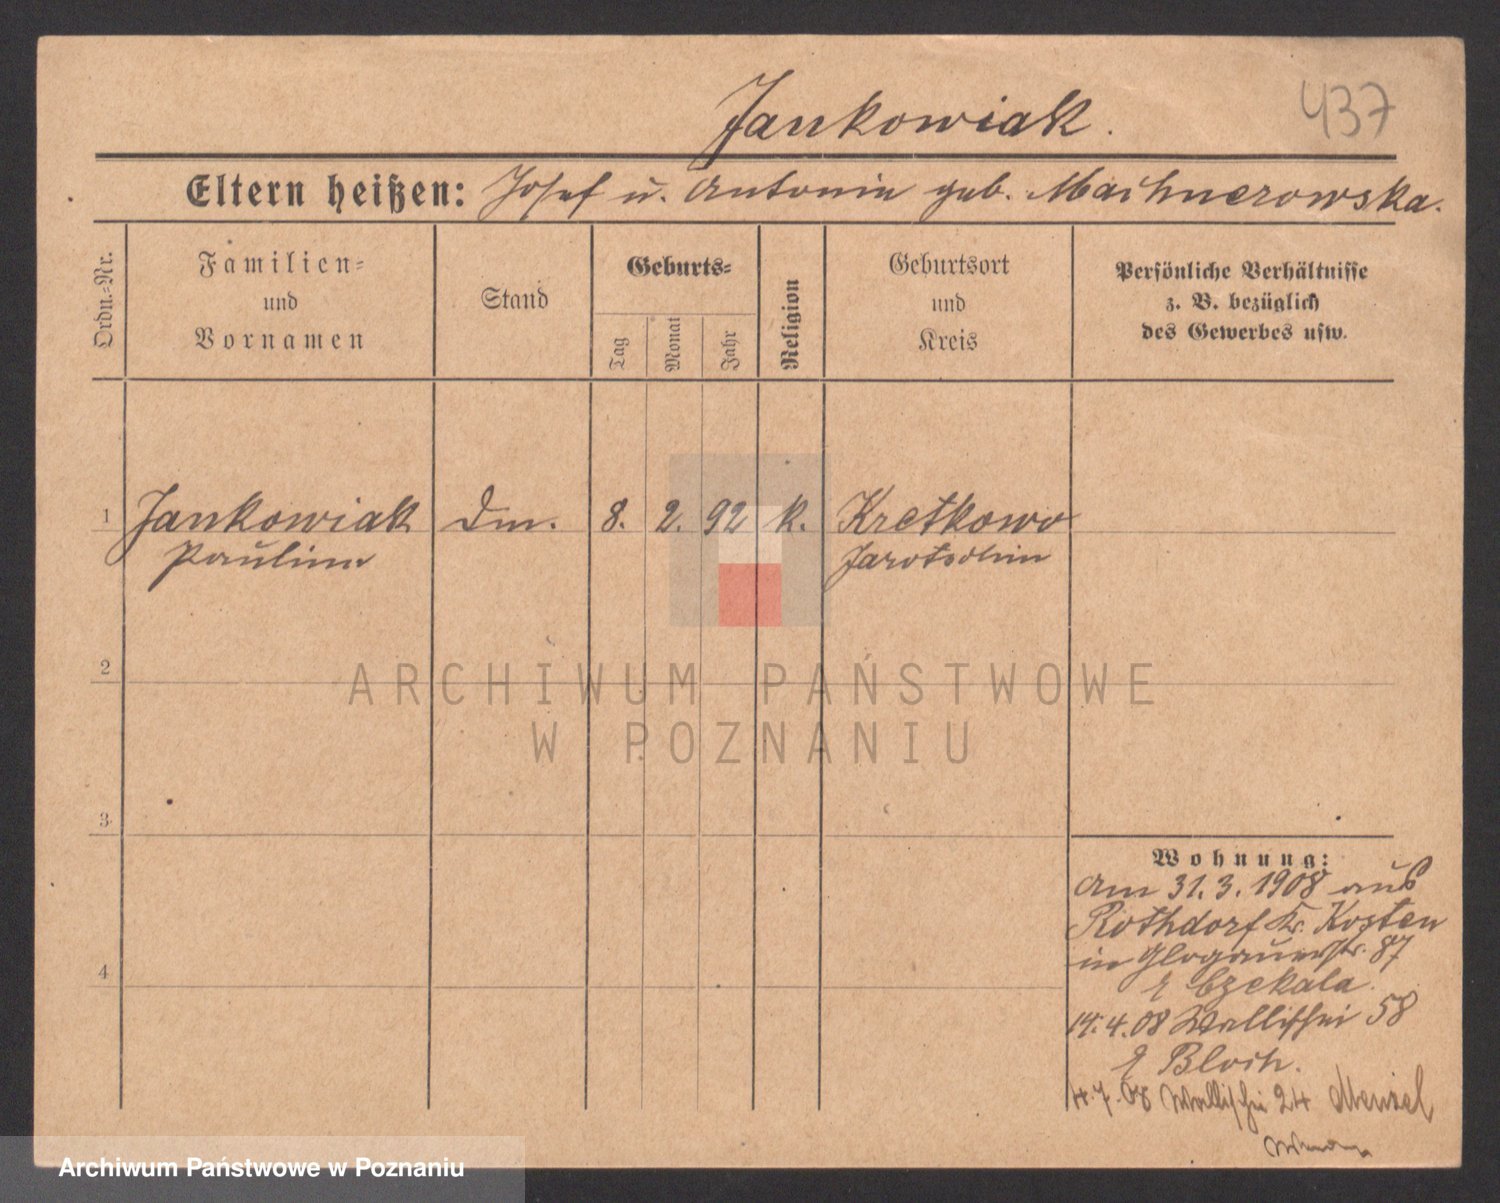 Jankowiak.
437
Eltern heißen: Josef u. Antonin geb. Machnerowska.
Ordn.-Nr.
Familien-
und
Vornamen
Stand
Geburts-
Tag
Monat
Jahr
Religion
Geburtsort
und
Kreis
Persönliche Verhältnisse
z. B. bezüglich
des Gewerbes usw.
1 Jankowiak Dm. 8. 2. 92 k. Kretkowo
Paulina Jarotschin
2
ARCHIWUM PAŃSTWOWE
W POZNANIU
3
Wohnung:
am 31.3.1908 aus
Rothdorf Kr. Kosten
in Glogauerstr. 87
Czekala.
4
14.4.08 Wallischei 58
Bloch.
4.7.08 Wallischei 24 Menzel
Archiwum Państwowe w Poznaniu